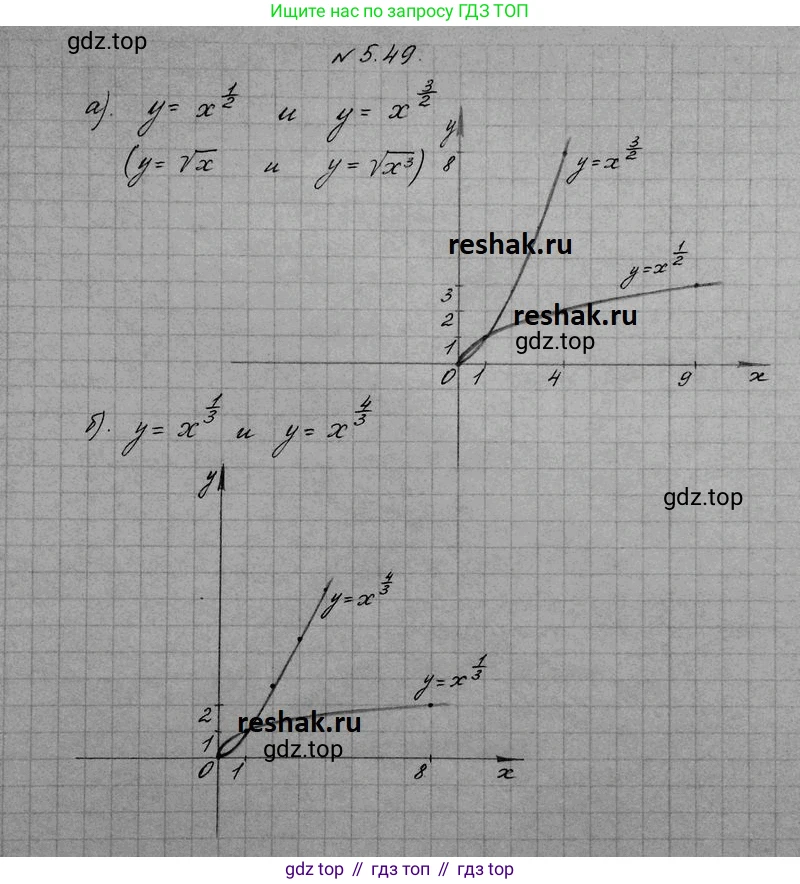 Ищите нас по запросу ГДЗ ТОП
gdz.top
№ 5.49.
а). y = x^{1/2} и y = x^{3/2}
(y = √x и y = √x³)
y
8
y = x^{3/2}
reshak.ru
y = x^{1/2}
3
2
reshak.ru
1
gdz.top
0 1 4 9 x
б). y = x^{1/3} и y = x^{4/3}
y
gdz.top
y = x^{4/3}
y = x^{1/3}
2
reshak.ru
1
gdz.top
0 1 8 x
gdz top // гдз топ // gdz top